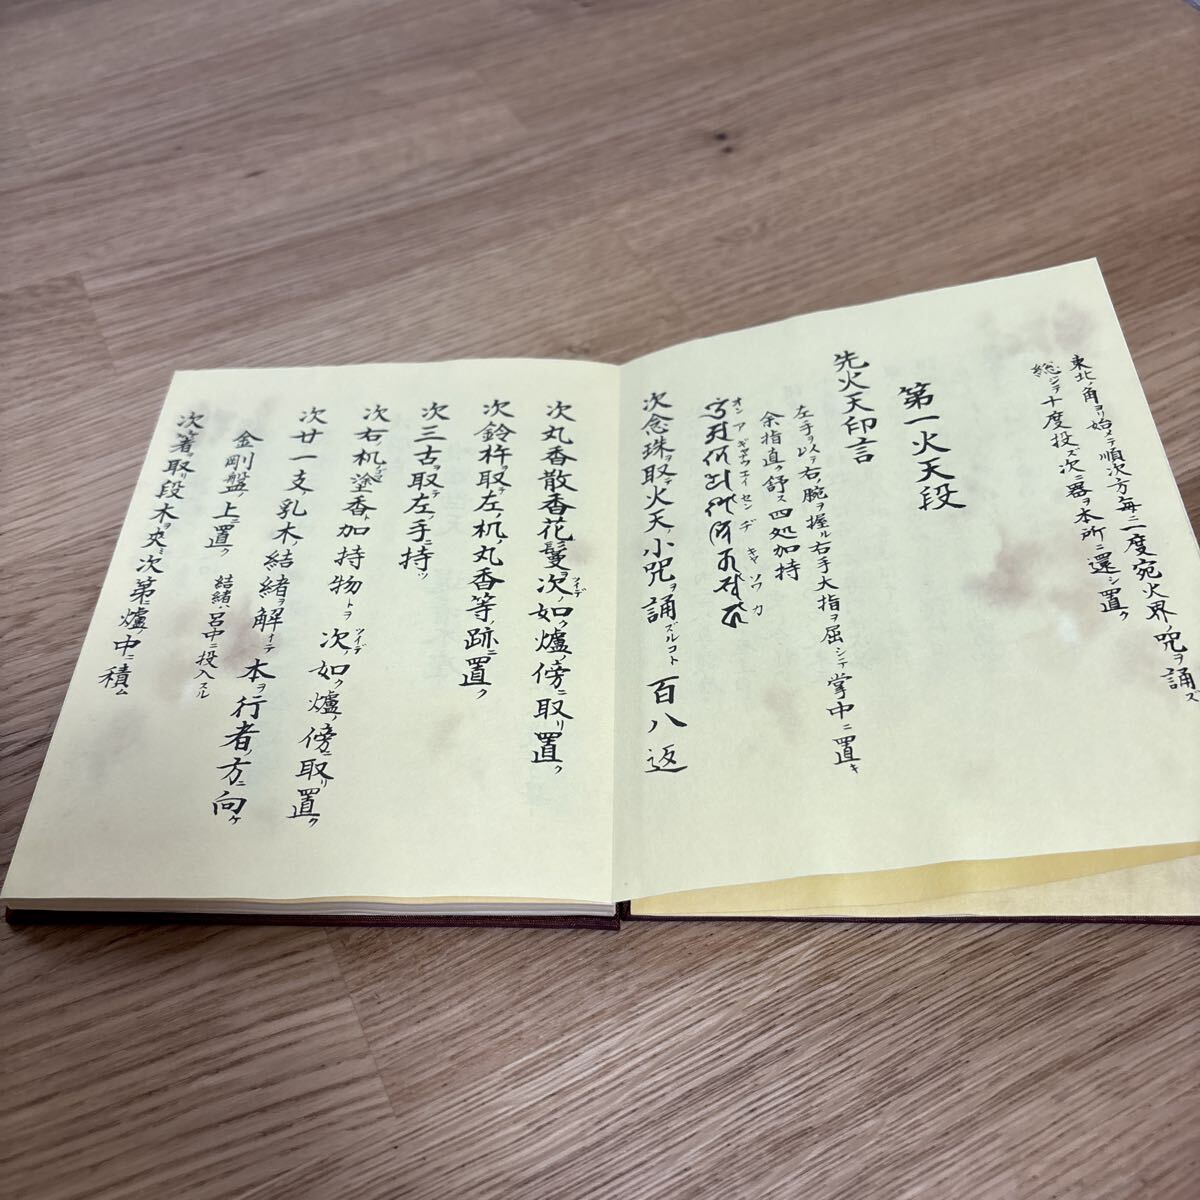 東北ノ角ヨリ始メテ順次方毎ニ二度宛火界ノ咒ヲ誦ス
総シテ十度投ズ次ニ器ヲ本所ニ還シ置ク
第一火天段
先火天印言
左手ヲ以テ右ノ腕ヲ握ル右手大指ヲ屈シテ掌中ニ置キ
余指直ク舒ス四処加持
オン ア ギャナウ エイ セン ヂ キャ ソワ カ
次念珠ヲ取テ火天ノ小咒ヲ誦ズルコト百八返
次丸香散香花鬘ヲ次如ク爐ノ傍ニ取リ置ク
ツイデ
次鈴杵ヲ取テ左ノ机ノ丸香等ノ跡ニ置ク
次三古ヲ取テ左ノ手ニ持ツ
次右ノ机ノ塗香ト加持物トヲ次ノ如ク爐ノ傍ニ取リ置ク
ツイデ
次廿一支ノ乳木ノ結緒ヲ解イテ本ヲ行者ノ方ニ向ケ
金剛盤ノ上ニ置ク
結緒ハ呂中ニ投入スル
次箸ヲ取リ段木ヲ夾ミ次第ニ爐ノ中ニ積ム